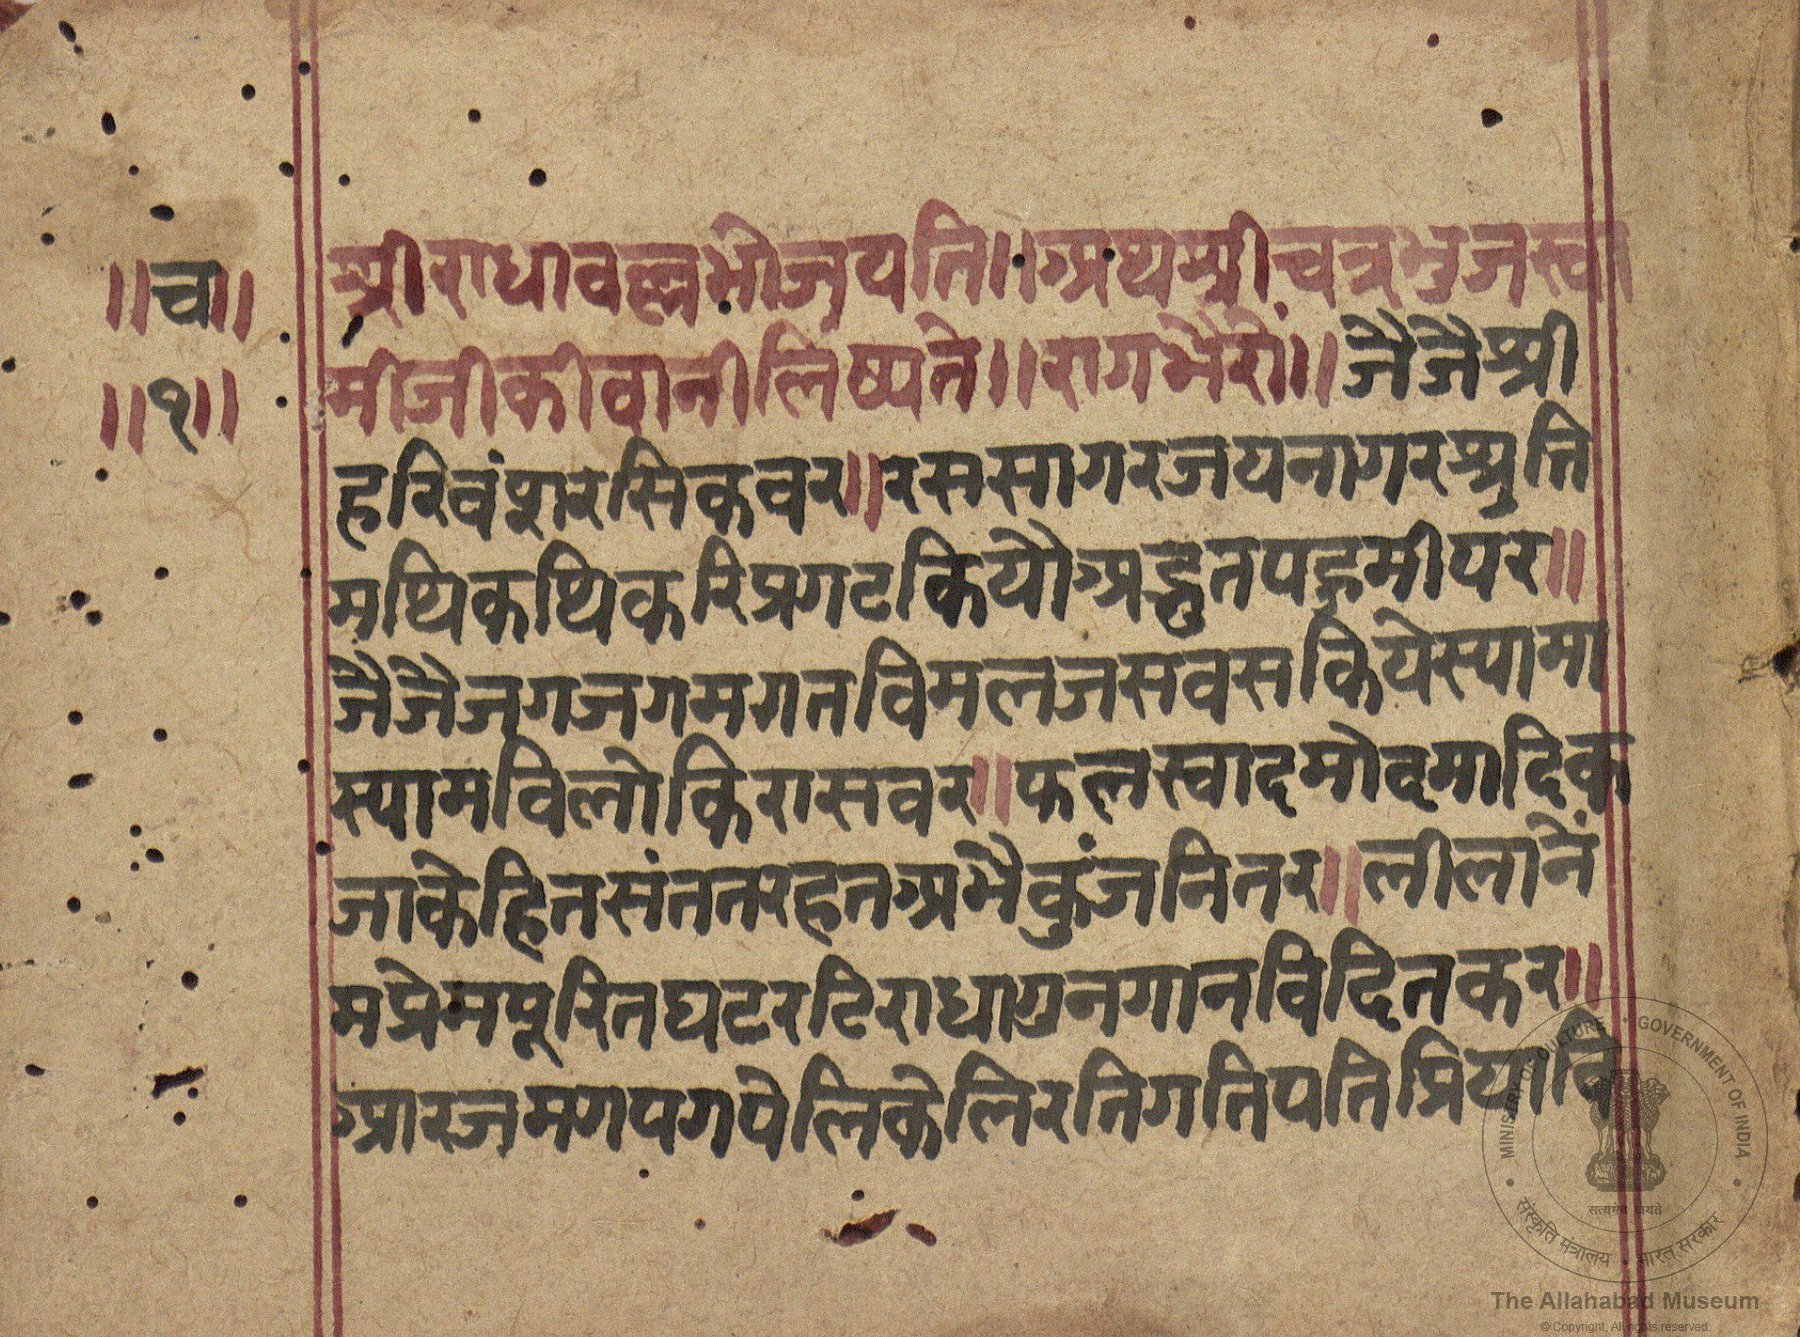 ॥च॥
॥१॥
श्रीराधावल्लभोजयति॥अथश्रीचत्रभुजस्वा
मीजीकीवानीलिष्यते॥रागभैरों॥जैजैश्री
हरिवंशरसिकवर॥रससागरजयनागरश्रुति
मथिकथिकरिप्रगटकियौअद्भुतपहुमीपर॥
जैजैजगजगमगतविमलजसवसकियेस्यामा
स्यामविलोकिरासवर॥फलस्वादमोदमादिक
जाकेहितसंततरहतअभैकुंजनितर॥लीलानें
मप्रेमपूरितघटरटिराधागुनगानविदितकर॥
आरजमगपगपेलिकेलिरतिगतिपतिप्रियावि
MINISTRY OF CULTURE • GOVERNMENT OF INDIA
सत्यमेव जयते
संस्कृति मंत्रालय • भारत सरकार
The Allahabad Museum
© Copyright, All rights reserved